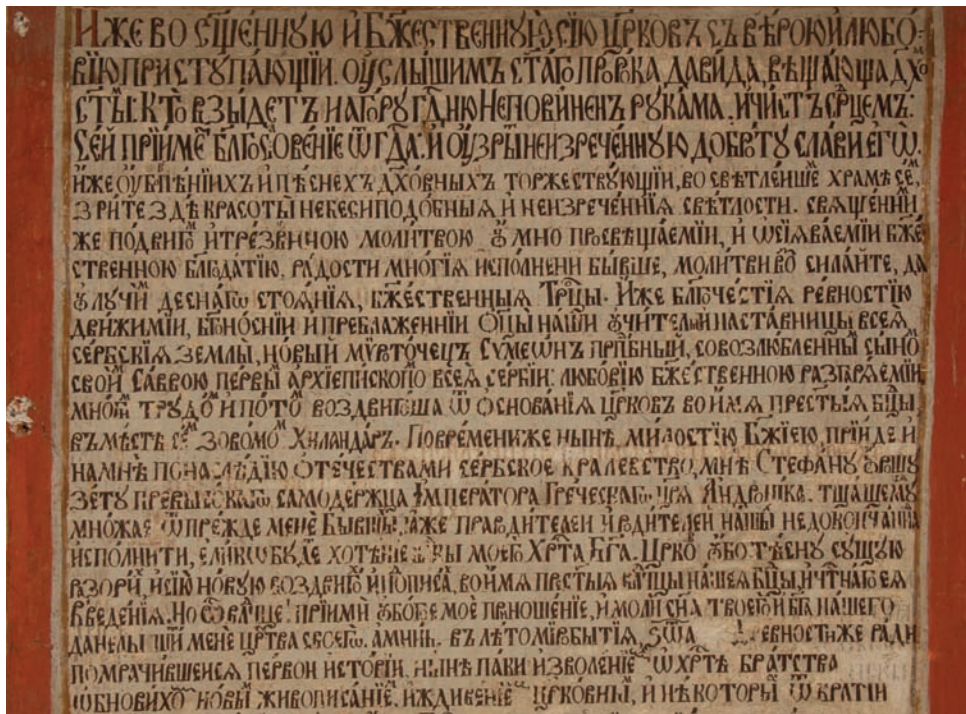 Иже во сщ҃е́нную и҆ Бж҃ественнꙋю сїю цр҃ковъ съ вѣ́рою и҆ любо́-
вїю пристꙋпа́ющїи. ᲂу҆слы́шимъ ст҃а́гѡ прⷪ҇ро́ка Дави́да, вѣща́юща дх҃о(м)
ст҃ы́(м): Кто̀ взы́детъ на го́рꙋ гд҇ню Непови́ненъ рꙋка́ма, и҆ чи́стъ ср҃цемъ:
Се́й прїи́ме(т) блг҇ослове́нїе ѿ гд҇а: и҆ ᲂу҆зри́ неизрече́ннꙋю добро́тꙋ сла́ви є҆гѡ̀.
и҆́же во пѣ́нїихъ и҆ пѣ́снехъ дх҃о́вныхъ торжествꙋ́ющїи, во свѣтле́йше(м) хра́мѣ се́(м),
зри́те здѣ̀ красоты̀ небесиподо́бныѧ и҆ неизрече́ннїѧ свѣ́тлости. свѧще́нни(м)
же по́двиго(м) и҆ тре́звичною моли́твою ᲂу҆мно просвѣща́емїи, и҆ ѡ҆сїѧва́емїи бж҃е-
ственною благода́тїю, ра́дости мно́гїѧ и҆спо́лнени бы́вше, моли́тви во(з)сила́йте, да
ᲂу҆лꙋчи́(м) десна́гѡ стоѧ́нїѧ, бж҃е́ственныѧ Трⷪ҇цы. И҆́же блг҇оче́стїѧ ре́вностїю
дви́жимїи, бг҃оно́снїи и҆ преблаже́ннїи ѻ҆тцы̀ на́ши ᲂу҆чи́телы и҆ наста́вницы всеѧ̀
се́рбскїѧ землы̀, но́вый мѵрто́чецъ Сѵмеѡ́нъ прпⷣбный, со возлю́бленны(м) сы́но(м)
свои́(м) Са́ввою пе́рвы(м) а҆рхїепи́скопо(м) всеѧ̀ се́рбїи: любо́вїю бж҃е́ственною разгарѧ́емїи,
мно́ги(м) трꙋдо́(м) и҆ по́то(м) воздвиго́ша ѿ ѡ҆снова́нїѧ цр҃ковъ во и҆́мѧ прест҃ы́ѧ бц҃ы,
въ мѣ́стѣ се́(м) зово́мо(м) Хиланда́ръ. По вре́мени же ны́нѣ, ми́лостїю Бж҃їею, прїи́де и҆
на мнѣ̀ по наслѣ́дїю ѻ҆те́чества ми се́рбское кра́левство, мнѣ̀ Стефа́нꙋ ᲂу҆ро́шꙋ
зе́тꙋ превысо́кагѡ самоде́ржца І҆мпера́тора Гре́ческагѡ цр҃ѧ̀ А҆ндро́ника. тща́щемꙋ
мно́жае ѿ пре́жде менѐ бы́вши(х), ꙗ҆́же прароди́телей и҆ роди́телей на́ши(х) недоконча́ннаѧ
и҆спо́лнити, є҆ли́кѡ бꙋ́де(т) хотѣ́нїе вл(ⷣ)кы моегѡ̀ Хрⷭ҇та̀ Бг҃а. Цр҃ко(в) ᲂу҆́бо тѣ́снꙋ сꙋ́щꙋю
разори́(х), и҆ сїю̀ но́вꙋю воздвиго́(х) и҆ попи́са(х), во и҆́мѧ прест҃ы́ѧ влⷣцы на́шеѧ бц҃ы, и҆ чⷭ҇тна́гѡ є҆ѧ̀
Введе́нїѧ. Но ѽ влⷣчце! прїимѝ ᲂу҆бо́гое моѐ приноше́нїе, и҆ молѝ сн҃а твоегѡ̀ и҆ бг҃а на́шего
да не лиши́(т) менѐ црⷭ҇тва своегѡ̀. а҆ми́нь. въ лѣ́то мїробытїѧ̀,
помрачи́вшейсѧ пе́рвой и҆сто́рїи, ны́нѣ па́ки и҆зволе́нїе(м) ѡ҆ хрⷭ҇тѣ̀ бра́тства
ѡ҆бнови́хо(м) но́вы(м) живописа́нїе(м), и҆ждиве́нїе(м) цр҃ко́вны(м), и҆ нѣ́которы(х) ѿ бра́тїи